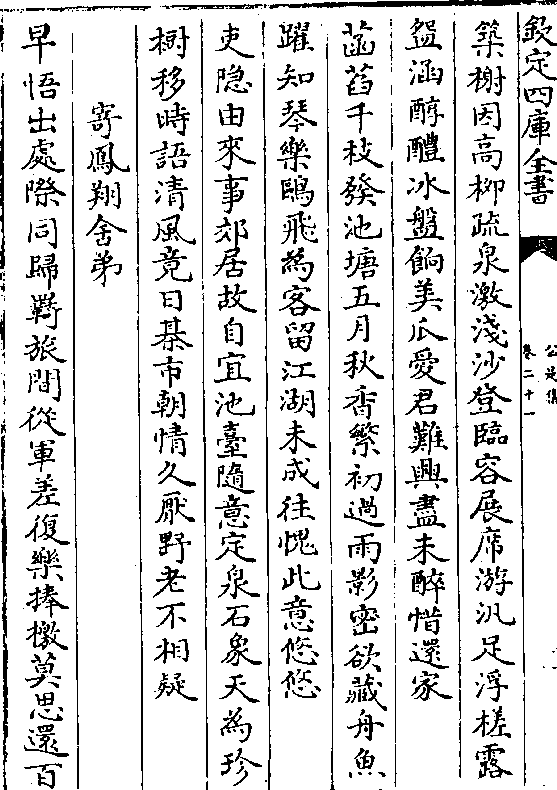 欽定四庫全書
公是集
卷二十一
築榭因高柳疏泉激淺沙登臨容展席游汎足浮槎露
盌涵醇醴冰盤餉美瓜愛君難興盡未醉惜還家
菡萏千枝發池塘五月秋香繁初過雨影密欲藏舟魚
躍知琴樂鷗飛為客留江湖未成往愧此意悠悠
吏隐由來事郊居故自宜池臺隨意定泉石象天為珍
樹移時語清風竟日棊市朝情久厭野老不相疑
寄鳳翔舍弟
早悟出處際同歸羇旅間從軍差復樂捧檄莫思還百